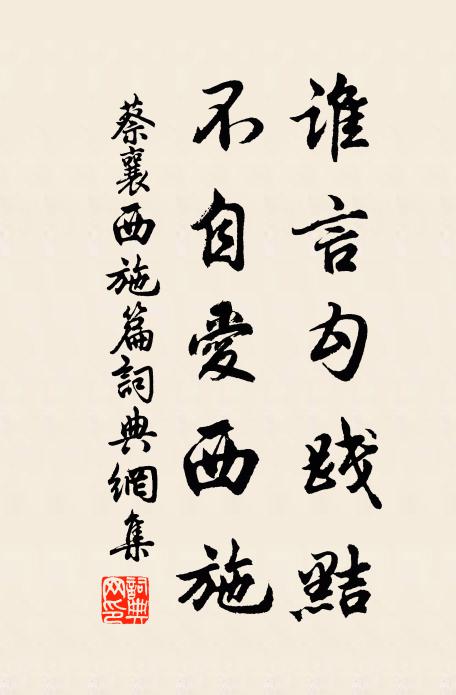 誰言勾踐黠
不自愛西施
蔡襄西施篇詞典網集
詞典網印